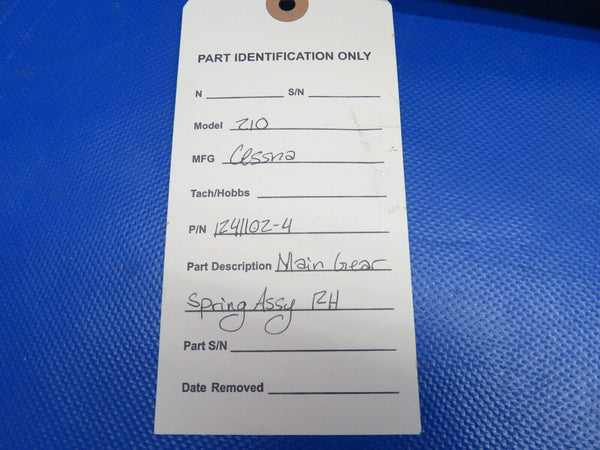 PART IDENTIFICATION ONLY
N S/N
Model 210
MFG Cessna
Tach/Hobbs
P/N 1241102-4
Part Description Main Gear
Spring Assy RH
Part S/N
Date Removed